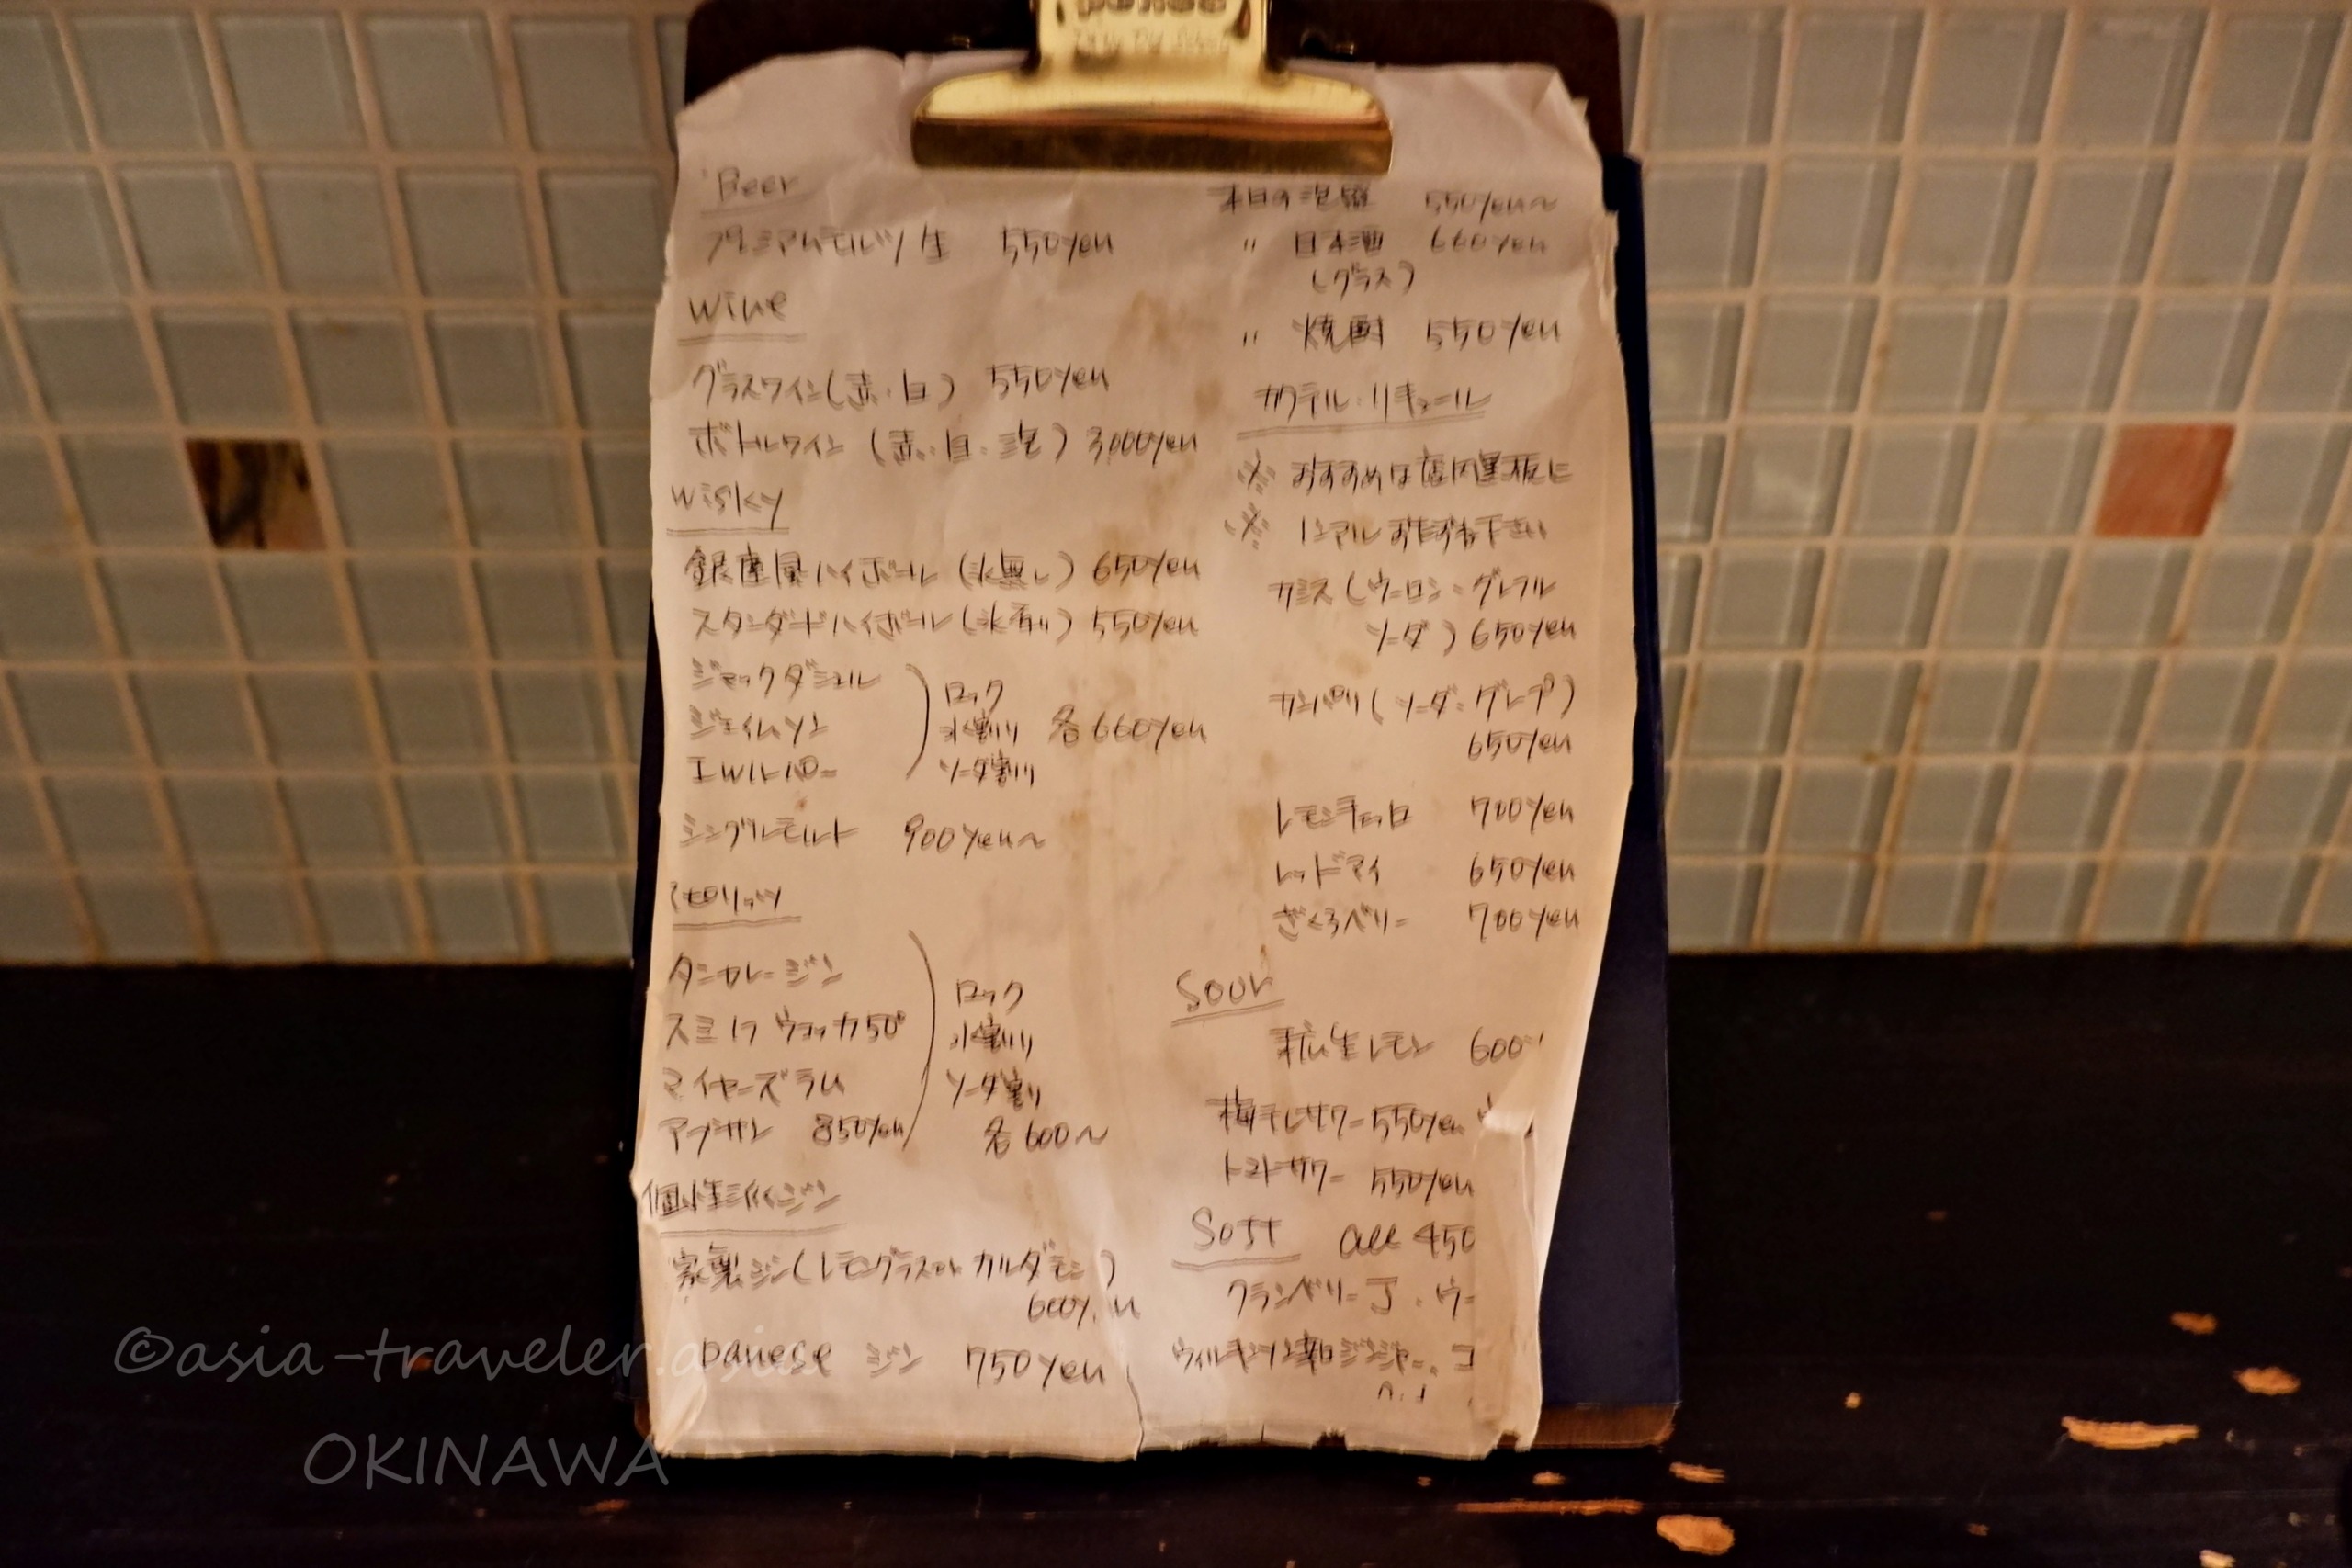 Beer
プレミアムモルツ/生 550yen
Wine
グラスワイン(赤・白) 550yen
ボトルワイン (赤・白・泡) 3,000yen
Wisky
銀座風ハイボール (氷無し) 650yen
スタンダードハイボール (氷有り) 550yen
ジャックダニエル ロック
ジェイムソン 水割り 各660yen
I.Wハーパー ソーダ割り
シングルモルト 900yen〜
スピリッツ
タンカレージン ロック
スミノフ ウォッカ50° 水割り
マイヤーズラム ソーダ割り
アブサン 850yen 各600〜
個性派ジン
家製ジン(レモングラスor カルダモン)
ジン 750yen
本日の泡盛 550yen〜
〃 日本酒 660yen
(グラス)
〃 焼酎 550yen
カクテル・リキュール
※ おすすめは店内黒板に
※
カシス (ウーロン・グレフル
ソーダ) 650yen
カンパリ (ソーダ・グレープ)
650yen
レモンチェッロ 700yen
レッドアイ 650yen
ざくろベリー 700yen
Sour
生レモン 600
梅干しサワー 550yen
トマトサワー 550yen
Soft all 450
クランベリーJ・ウー
ウィルキンソン辛口ジンジャー・コ
©asia-traveler.asia
OKINAWA